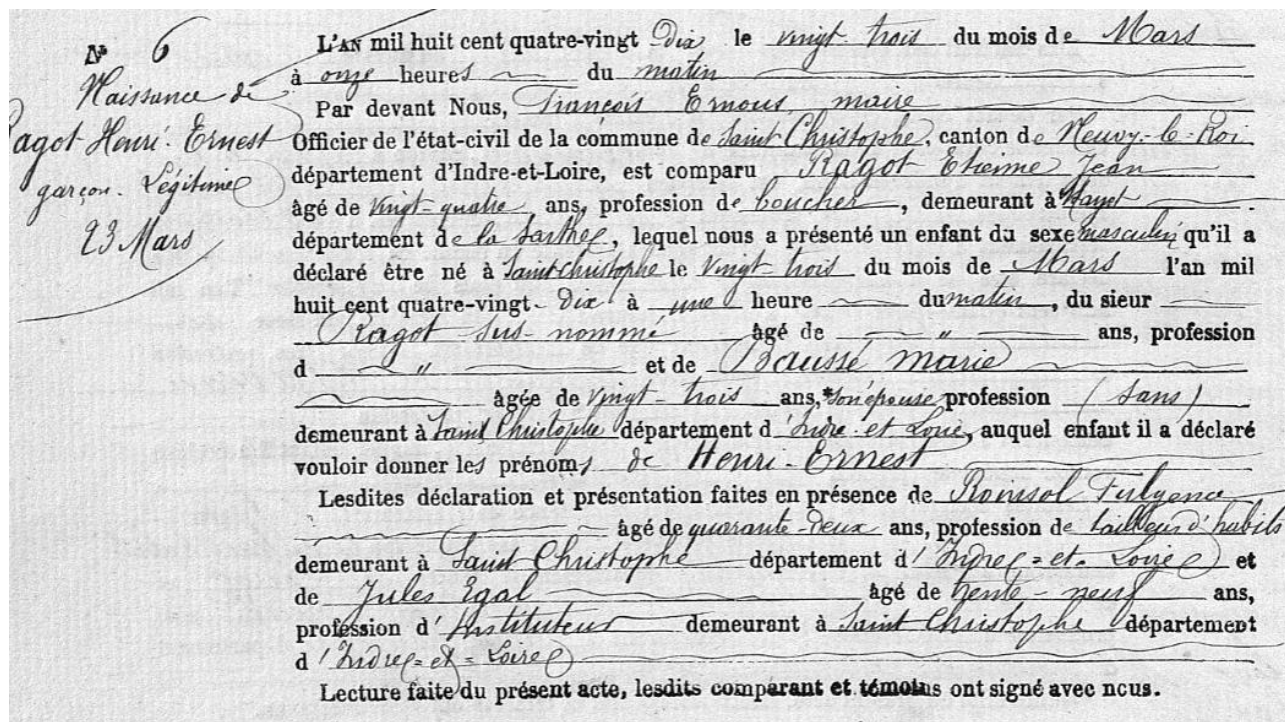 N° 6
Naissance de
Ragot Henri-Ernest
garçon. Légitime
23 Mars
L'AN mil huit cent quatre-vingt Dix le vingt trois du mois de Mars
à onze heures du matin
Par devant Nous, François Ernous, maire
Officier de l'état-civil de la commune de Saint Christophe, canton de Neuvy-le-Roi
département d'Indre-et-Loire, est comparu Ragot Etienne Jean
âgé de vingt-quatre ans, profession de boucher, demeurant à Mayet
département de la Sarthe, lequel nous a présenté un enfant du sexe masculin qu'il a
déclaré être né à Saint Christophe le vingt trois du mois de Mars l'an mil
huit cent quatre-vingt-Dix à une heure du matin, du sieur
Ragot sus-nommé âgé de " ans, profession
d " et de Baussé marie
âgée de vingt-trois ans, *son épouse profession (sans)
demeurant à Saint Christophe département d'Indre-et-Loire, auquel enfant il a déclaré
vouloir donner les prénoms de Henri-Ernest
Lesdites déclaration et présentation faites en présence de Fulgence
âgé de quarante-deux ans, profession de tailleur d'habits
demeurant à Saint Christophe département d'Indre=et=Loire et
de Jules Egal âgé de trente-neuf ans,
profession d'Instituteur demeurant à Saint Christophe département
d'Indre=et=Loire
Lecture faite du présent acte, lesdits comparant et témoins ont signé avec nous.